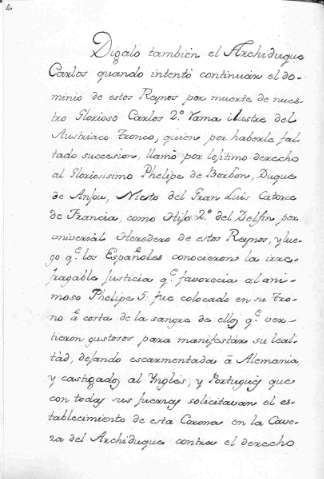 Digalo también el Archiduque
Carlos quando intentó continuar el do-
minio de estos Reynos por muerte de nues-
tro Glorioso Carlos 2.º Rama ilustre del
Austriaco Tronco, quien por haberle fal-
tado succesion, llamó por lejitimo derecho
al Gloriosissimo Phelipe de Borbon, Duque
de Anjou, Nieto del Gran Luis Catorce
de Francia, como Hijo 2.º del Delfin, por
universal Heredero de estos Reynos, y lue-
go q.e los Españoles conocieron la irre-
fragable justicia q.e favorecia al ani-
moso Phelipe 5. fue colocado en su Tro-
no á costa de la sangre de ellos q.e ver-
tieron gustosos para manifestar su leal-
tád, dejando escarmentada á Alemania
y castigados al Ynglés, y Portugués que
con todas sus fuerzas solicitavan el es-
tablecimiento de esta Corona en la Cave-
za del Archiduque contra el derecho